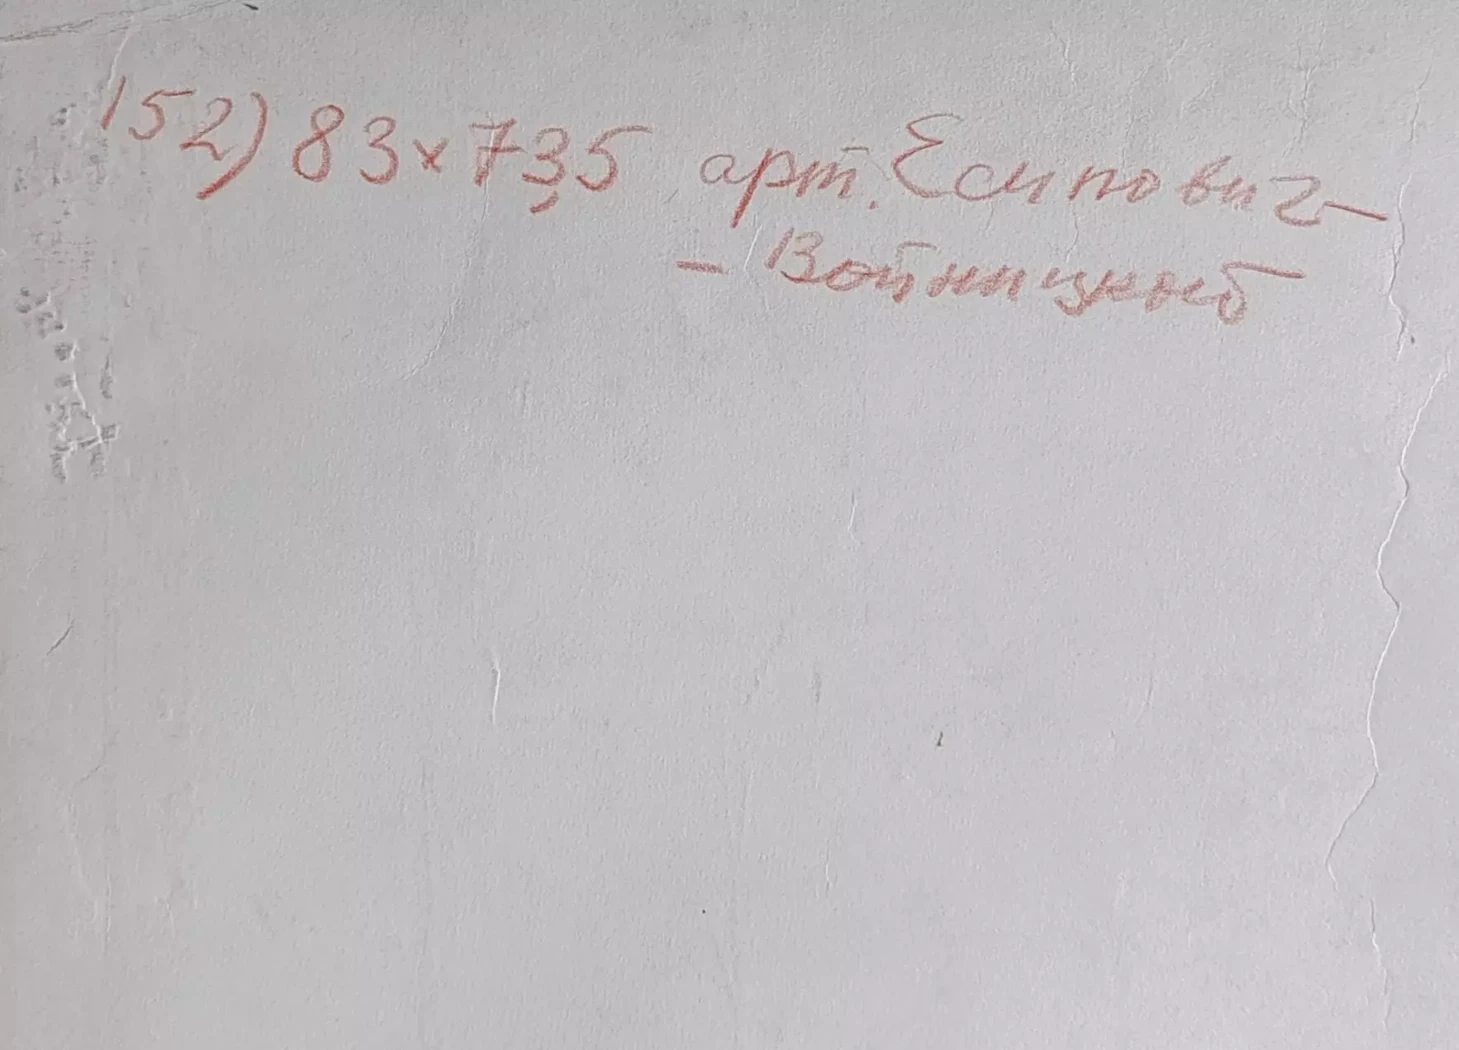 152) 83×73,5 арт. Есипович-
- Войницкий